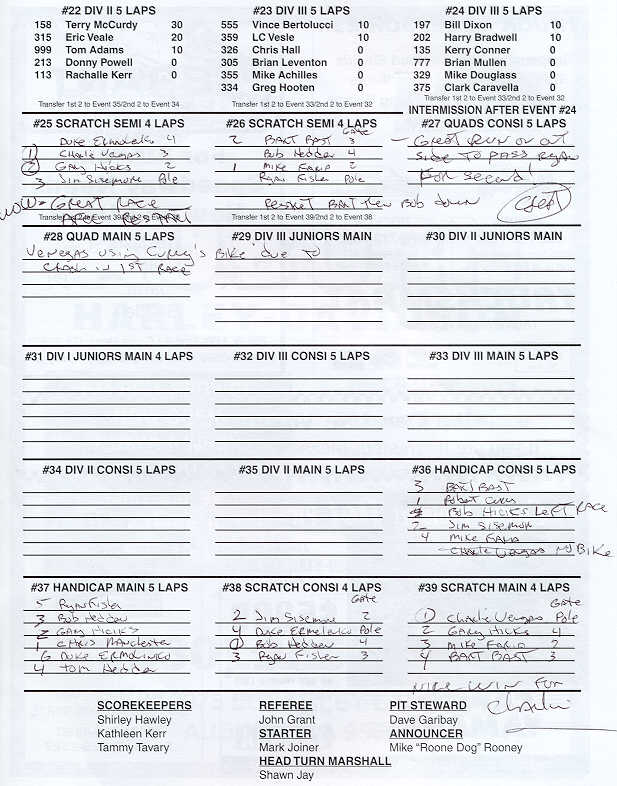 #22 DIV II 5 LAPS
158 Terry McCurdy 30
315 Eric Veale 20
999 Tom Adams 10
213 Donny Powell 0
113 Rachalle Kerr 0
Transfer 1st 2 to Event 35/2nd 2 to Event 34
#23 DIV III 5 LAPS
555 Vince Bertolucci 10
359 LC Vesle 10
326 Chris Hall 0
305 Brian Leventon 0
355 Mike Achilles 0
334 Greg Hooten 0
Transfer 1st 2 to Event 33/2nd 2 to Event 32
#24 DIV III 5 LAPS
197 Bill Dixon 10
202 Harry Bradwell 10
135 Kerry Conner 0
777 Brian Mullen 0
329 Mike Douglass 0
375 Clark Caravella 0
Transfer 1st 2 to Event 33/2nd 2 to Event 32
INTERMISSION AFTER EVENT #24
#25 SCRATCH SEMI 4 LAPS
Duke Ermolenko 4
1 Charlie Venegas 3
2 Gary Hicks 2
3 Jim Sisemore Pole
WOW - GREAT RACE
#26 SCRATCH SEMI 4 LAPS
Gate
2 BART BAST 3
Bob Hedden 4
1 Mike Faria 2
Ryan Fisher Pole
Transfer 1st 2 to Event 39/2nd 2 to Event 38
RESTART BART then Bob down
#27 QUADS CONSI 5 LAPS
- GREAT RUN on out
Side TO PASS Ryan
For Second!
Great
#28 QUAD MAIN 5 LAPS
Venegas using Curry's Bike due to
CRASH in 1ST RACE
#29 DIV III JUNIORS MAIN
#30 DIV II JUNIORS MAIN
#31 DIV I JUNIORS MAIN 4 LAPS
#32 DIV III CONSI 5 LAPS
#33 DIV III MAIN 5 LAPS
#34 DIV II CONSI 5 LAPS
#35 DIV II MAIN 5 LAPS
#36 HANDICAP CONSI 5 LAPS
3 BART BAST
1 Robert Curry
Bob HICKS Left RACE
2 Jim Sisemore
4 Mike Faria
Charlie Venegas NO BIKE
#37 HANDICAP MAIN 5 LAPS
5 Ryan Fisher
3 Bob Hedden
2 GARY HICKS
1 CHRIS MANCHESTER
6 DUKE ERMOLENKO
4 TOM Hedden
#38 SCRATCH CONSI 4 LAPS
Gate
2 Jim Sisemore 2
4 DUKE ERMOLENKO Pole
1 Bob Hedden 4
3 Ryan Fisher 3
#39 SCRATCH MAIN 4 LAPS
Gate
1 Charlie Venegas Pole
2 GARY Hicks 4
3 Mike FARIA 2
4 BART BAST 3
NICE WIN FOR
Charlie
SCOREKEEPERS
Shirley Hawley
Kathleen Kerr
Tammy Tavary
REFEREE
John Grant
STARTER
Mark Joiner
HEAD TURN MARSHALL
Shawn Jay
PIT STEWARD
Dave Garibay
ANNOUNCER
Mike “Roone Dog” Rooney